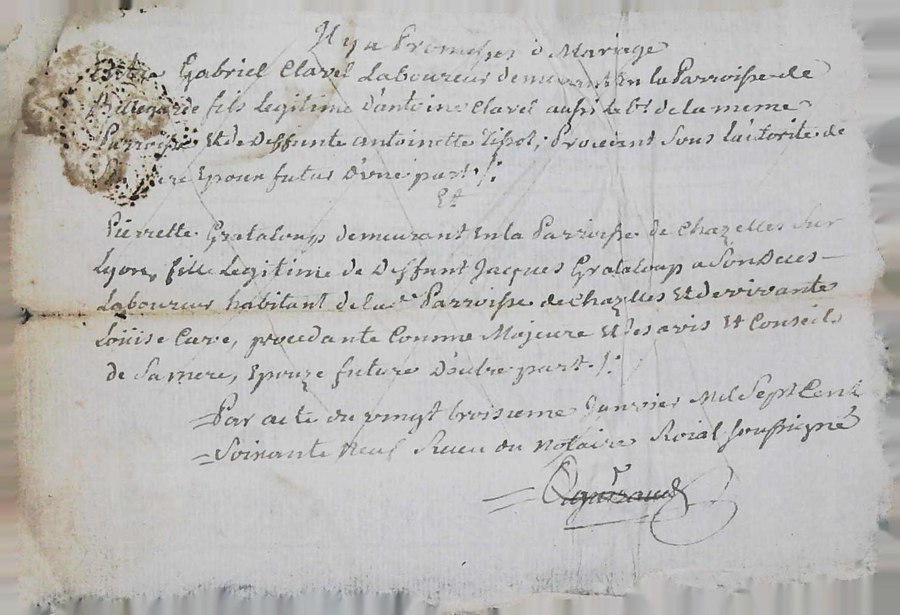 Il y a Promesses de Mariage
Entre Gabriel Clavel Laboureur demeurant En la Parroisse de
Bellegarde fils Legitime d'antoine Clavel aussi Lab.r de la meme
Parroisse Et de Deffunte antoinette Tissot, Procédant sous l'autorité de
pere Epoux futur D'une part /:
Et
Pierrette Grataloup demeurant En la Parroisse de Chazelles sur
Lyon, fille Legitime de Deffunt Jacques Grataloup a son Deces
Laboureur habitant de la d.e Parroisse de Chazelles Et de vivante
Louise Cave, procedante Comme Majeure Et des avis Et Conseils
de Sa mere, Epouze future D'autre part /:
=Par acte du vingt troisieme Janvier Mil Sept Cent
=Soixante Neuf Receu du Notaire Roial soussigné